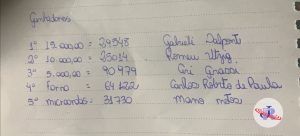 Ganhadores
1º 15.000,00 = 29548 Gabrieli Dalponte
2º 10.000,00 = 25014 Romeu Utzig
3º 5.000,00 = 90979 Cri
4º Forno = 64122 Carlos Roberto de Paula
5º microondas = 31730 matos